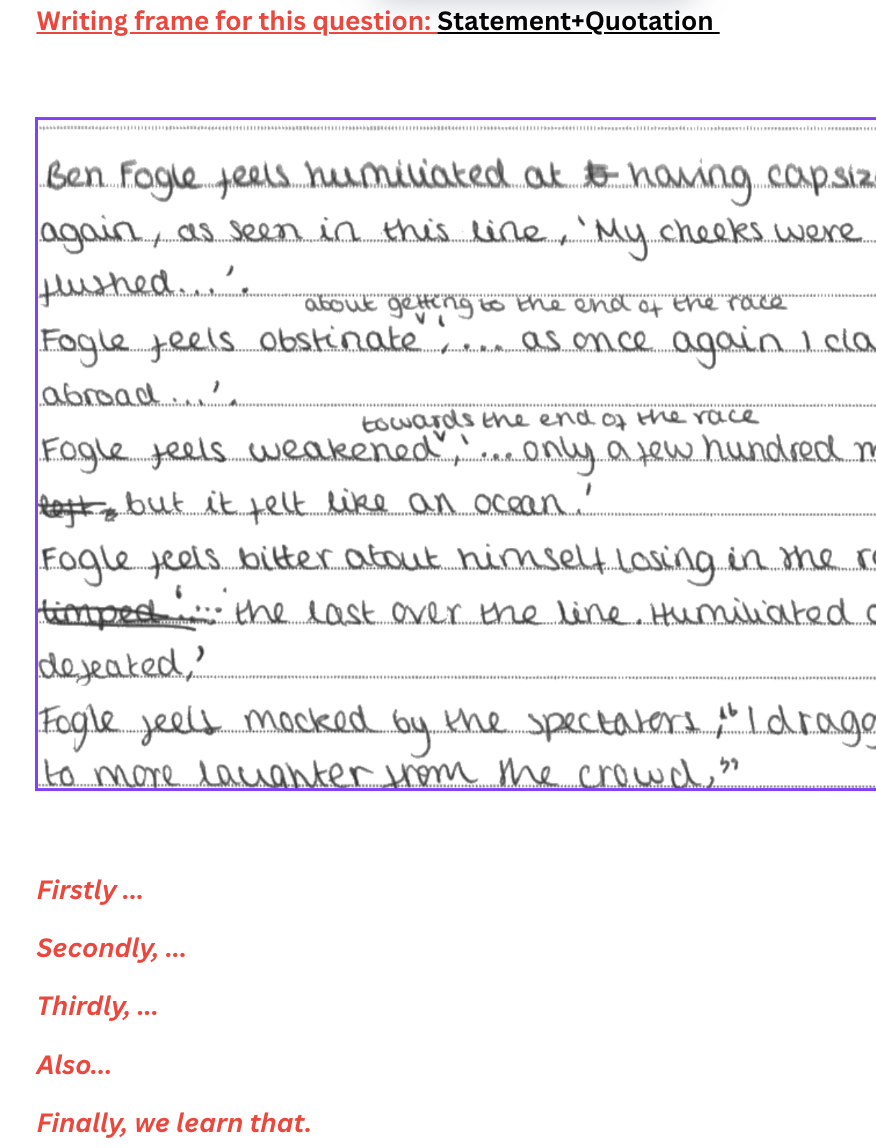 Writing frame for this question: Statement+Quotation
Ben Fogle feels humiliated at having capsiz
again, as seen in this line, 'My cheeks were
flushed...'.
about getting to the end of the race
Fogle feels obstinate, '... as once again I cla
abroad...'.
towards the end of the race
Fogle feels weakened, '... only a few hundred m
left, but it felt like an ocean.'
Fogle feels bitter about himself losing in the r
limped '... the last over the line. Humiliated
defeated,'
Fogle feels mocked by the spectators, "I dragg
to more laughter from the crowd,"
Firstly ...
Secondly, ...
Thirdly, ...
Also...
Finally, we learn that.